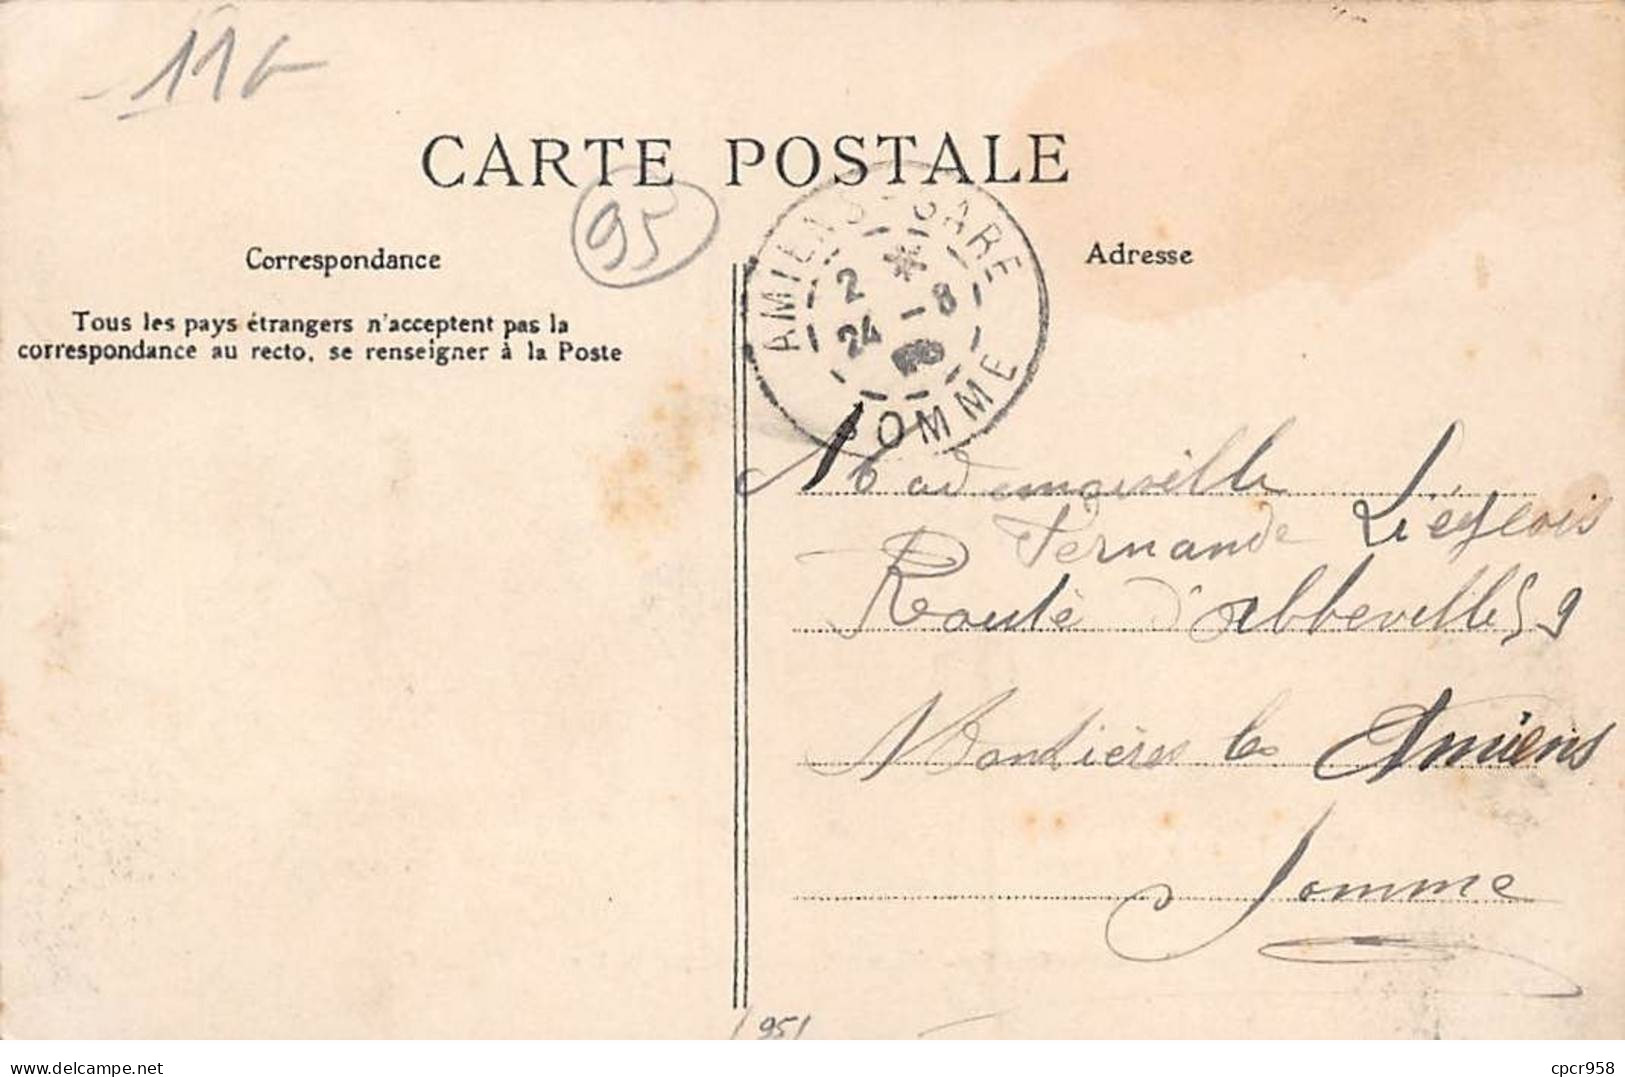 116
CARTE POSTALE
95
Correspondance
Adresse
Tous les pays étrangers n'acceptent pas la
correspondance au recto, se renseigner à la Poste
AMIENS-GARE
2 *
24 - 8
SOMME
Mademoiselle
Fernande Liégeois
Route d'Abbeville 59
Montières les Amiens
Somme
95
delcampe.net
cpcr958